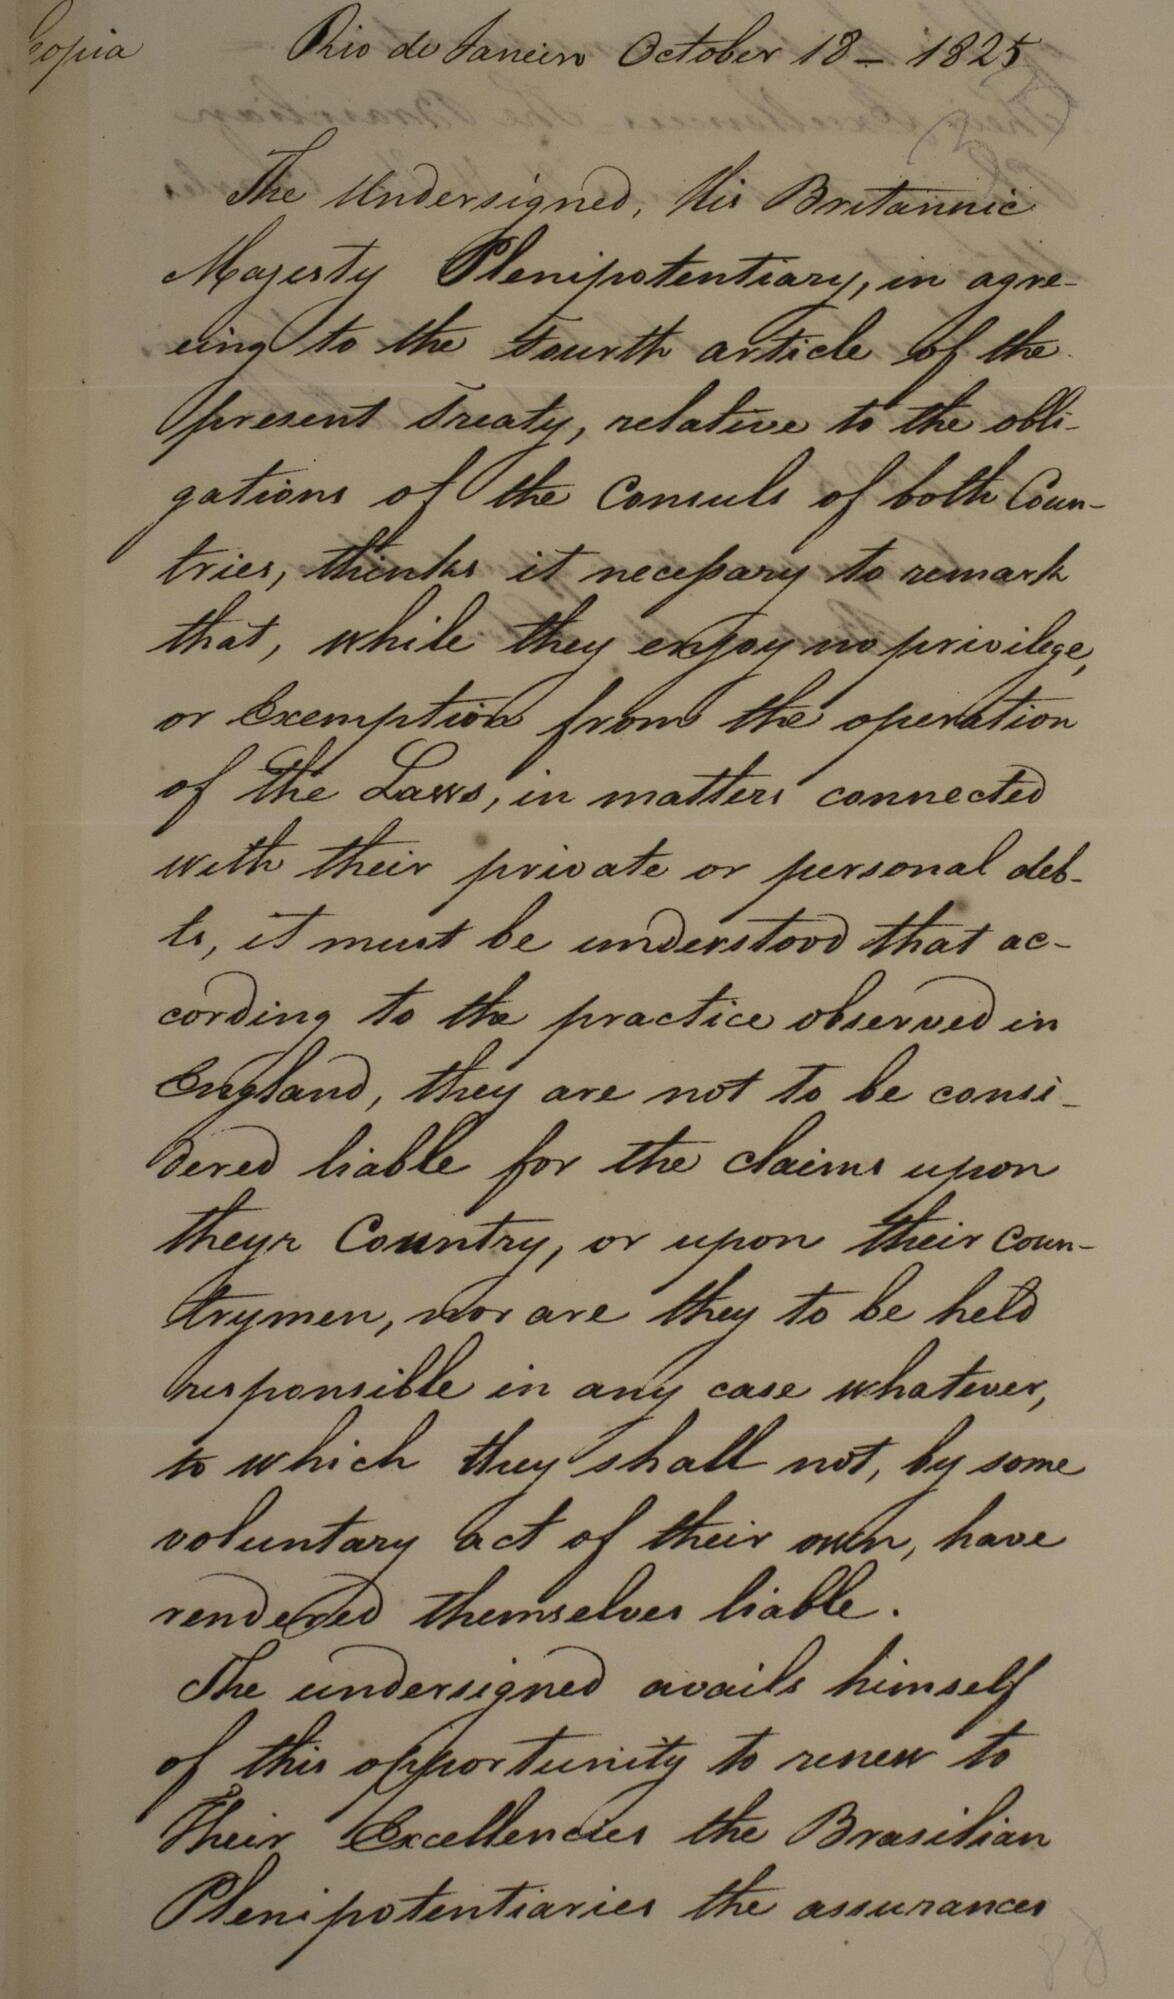 Copia
Rio de Janeiro October 18 - 1825
The Undersigned, His Britannic
Majesty Plenipotentiary, in agre-
eing to the Fourth article of the
present Treaty, relative to the obli-
gations of the Consuls of both Coun-
tries, thinks it necessary to remark
that, while they enjoy no privilege,
or Exemption from the operation
of the Laws, in matters connected
with their private or personal deb-
ts, it must be understood that ac-
cording to the practice observed in
England, they are not to be consi-
dered liable for the claims upon
theyr Country, or upon their Coun-
trymen, nor are they to be held
responsible in any case whatever,
to which they shall not, by some
voluntary act of their own, have
rendered themselves liable.
The undersigned avails himself
of this opportunity to renew to
Their Excellencies the Brasilian
Plenipotentiaries the assurances